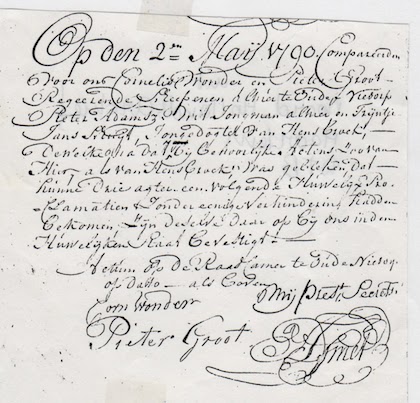 Op den 2en Maij 1790 Compareerden
voor ons Cornelis Wonder en Pieter Groot
Regeerende Scheepenen alhier te Oude Niedorp
Pieter Adamsz Smit Jongman alhier en Trijntje
Jans Jongedogter van Hensbroek,
Dewelke na dat Behoorlijke Actens Zoo van
Hier, als van Hensbroek; was gebleken dat
hunne Drie agter een volgende Huwelijx Pro-
klamatien Zonder eenige Verhindering Hadden
Bekomen, Zijn deselve daar op bij ons in den
Huwelijken Staat Bevestigt.
Actum op de Raad Camer te Oude Niedorp
op Datto als Boven
Corn Wonder
Mij Secrets
Pieter Groot